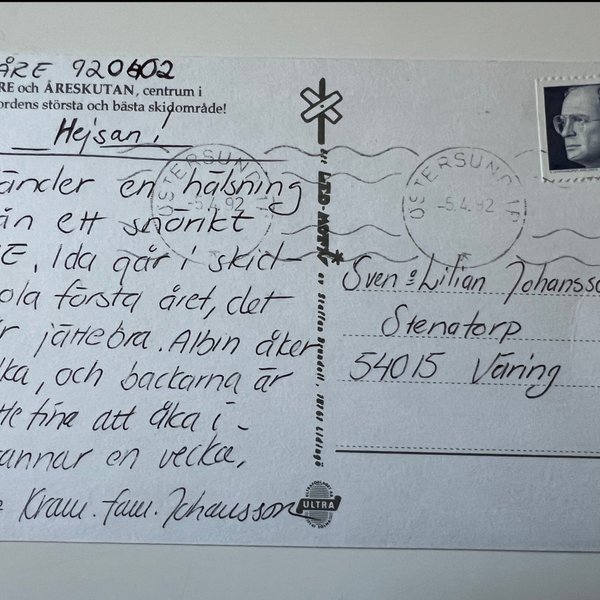 ÅRE 920402
RE och ÅRESKUTAN, centrum i
ordens största och bästa skidområde!
Hejsan!
änder en hälsning
ån ett snörikt
E, Ida går i skid-
ola första året, det
r jättebra. Albin åker
ka, och backarna är
tte fina att åka i -
annar en vecka.
Kram. fam. Johansson
ÖSTERSUND
-5.4.92
ÖSTERSUND
-5.4.92
av Staffan 18161 Lidingö
ULTRA
Sven o Lilian Johansso
Stenatorp
54015 Väring